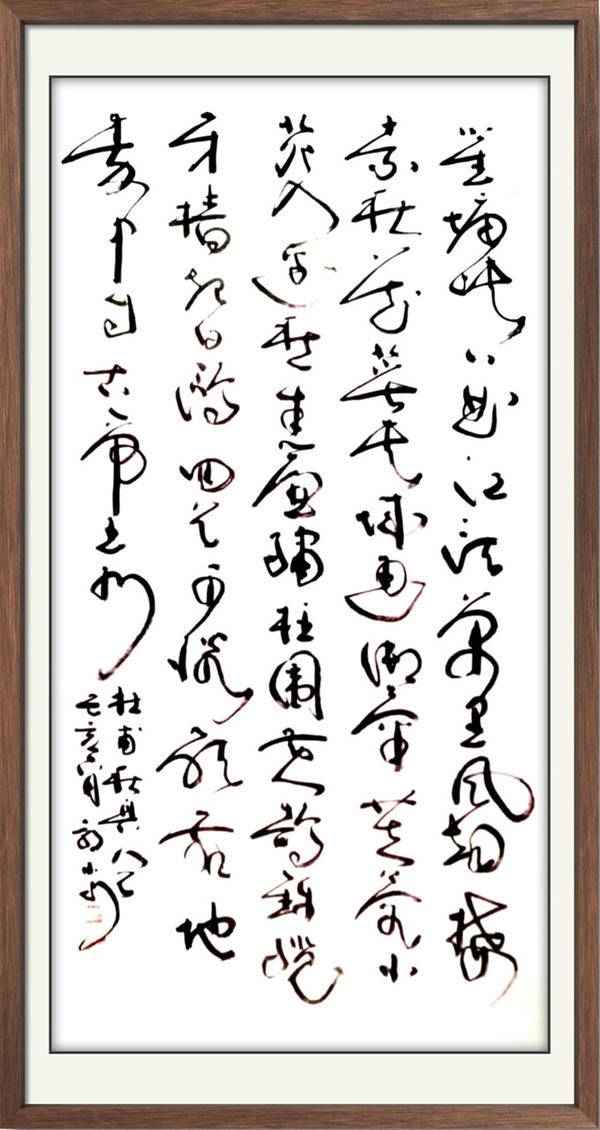 瞿塘峡口曲江头万里风烟接
素秋花萼夹城通御气芙蓉小
苑入边愁珠帘绣柱围黄鹄锦缆
牙樯起白鸥回首可怜歌舞地
秦中自古帝王州
杜甫秋兴八
己亥月